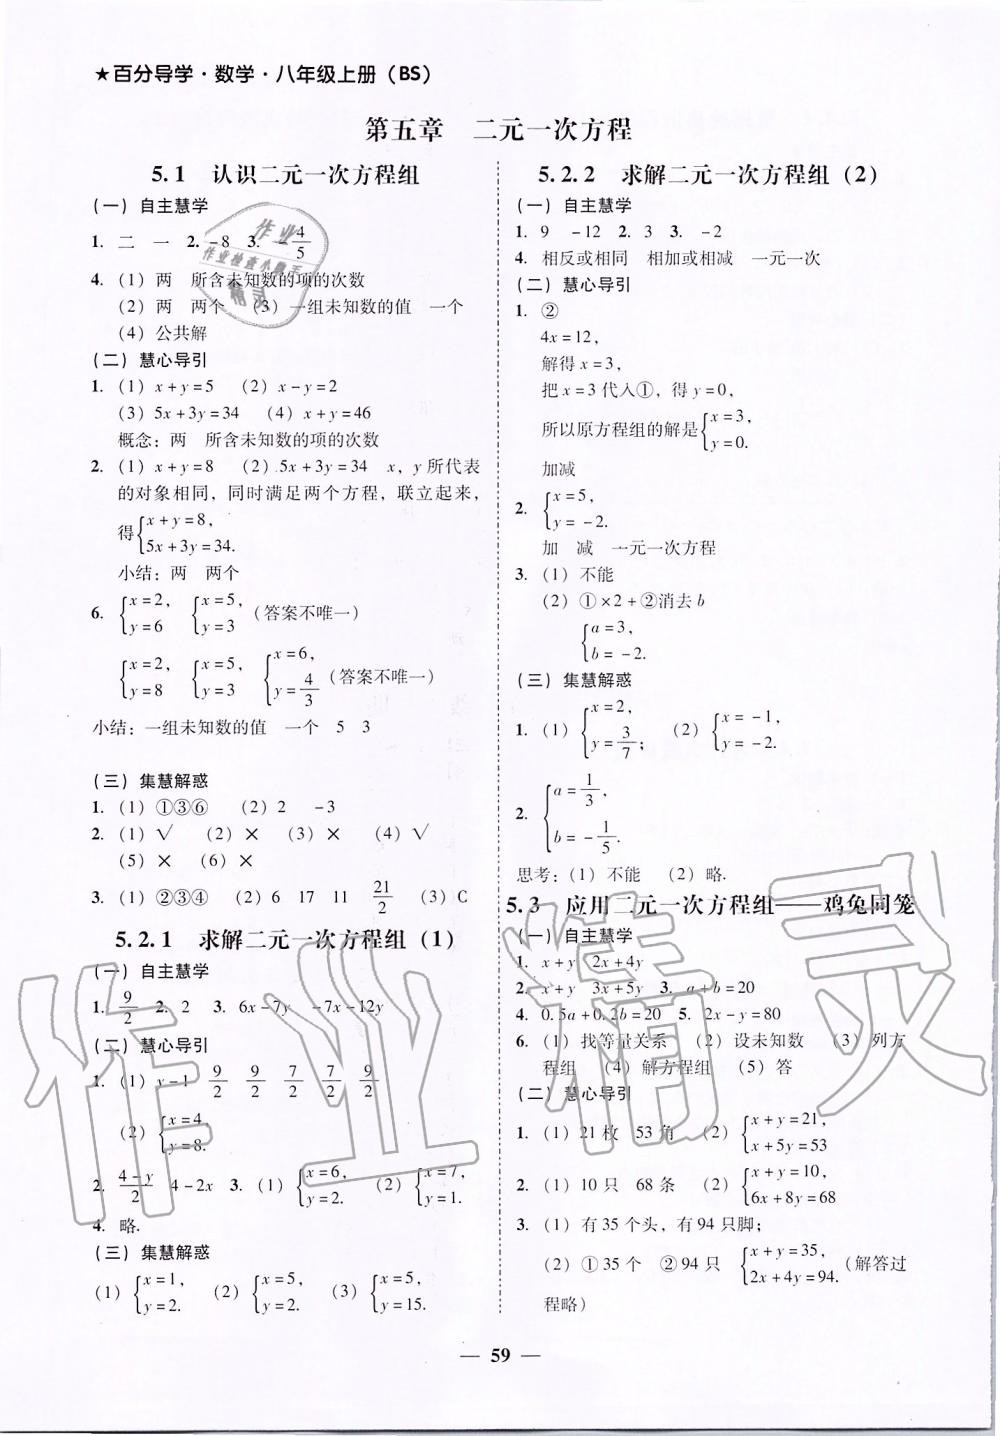 ★百分导学·数学·八年级上册（BS）
第五章　二元一次方程
5.1　认识二元一次方程组
（一）自主慧学
1. 二　一　2. -8　3. -4/5
4. （1）两　所含未知数的项的次数
（2）两　两个　（3）一组未知数的值　一个
（4）公共解
（二）慧心导引
1. （1）x+y=5　（2）x-y=2
（3）5x+3y=34　（4）x+y=46
概念：两　所含未知数的项的次数
2. （1）x+y=8　（2）5x+3y=34　x，y所代表
的对象相同，同时满足两个方程，联立起来，
得{x+y=8，
5x+3y=34.
小结：两　两个
6. {x=2，y=6　{x=5，y=3（答案不唯一）
{x=2，y=8　{x=5，y=3　{x=6，y=4/3（答案不唯一）
小结：一组未知数的值　一个　5　3
（三）集慧解惑
1. （1）①③⑥　（2）2　-3
2. （1）√　（2）×　（3）×　（4）√
（5）×　（6）×
3. （1）②③④　（2）6　17　11　21/2　（3）C
5.2.1　求解二元一次方程组（1）
（一）自主慧学
1. 9/2　2. 2　3. 6x-7y　-7x-12y
（二）慧心导引
1. （1）y-1　9/2　9/2　7/2　7/2　9/2
（2）{x=4
y=8.
2. 4-y/2　4-2x　3. （1）{x=6，y=2.　（2）{x=7，y=1.
4. 略.
（三）集慧解惑
（1）{x=1，y=2.　（2）{x=5，y=2.　（3）{x=5，y=15.
5.2.2　求解二元一次方程组（2）
（一）自主慧学
1. 9　-12　2. 3　3. -2
4. 相反或相同　相加或相减　一元一次
（二）慧心导引
1. ②
4x=12，
解得x=3，
把x=3代入①，得y=0，
所以原方程组的解是{x=3，
y=0.
加减
2. {x=5，
y=-2.
加　减　一元一次方程
3. （1）不能
（2）①×2+②消去b
{a=3，
b=-2.
（三）集慧解惑
1. （1）{x=2，y=3/7；　（2）{x=-1，y=-2.
2. {a=1/3，
b=-1/5.
思考：（1）不能　（2）略.
5.3　应用二元一次方程组——鸡兔同笼
（一）自主慧学
1. x+y　2x+4y
2. x+y　3x+5y　3. a+b=20
4. 0.5a+0.2b=20　5. 2x-y=80
6. （1）找等量关系　（2）设未知数　（3）列方
程组　（4）解方程组　（5）答
（二）慧心导引
1. （1）21枚　53角　（2）{x+y=21，
x+5y=53
2. （1）10只　68条　（2）{x+y=10，
6x+8y=68
3. （1）有35个头，有94只脚；
（2）①35个　②94只　{x+y=35，2x+4y=94.（解答过
程略）
— 59 —
作业
作业检查小助手
精灵
作业精灵